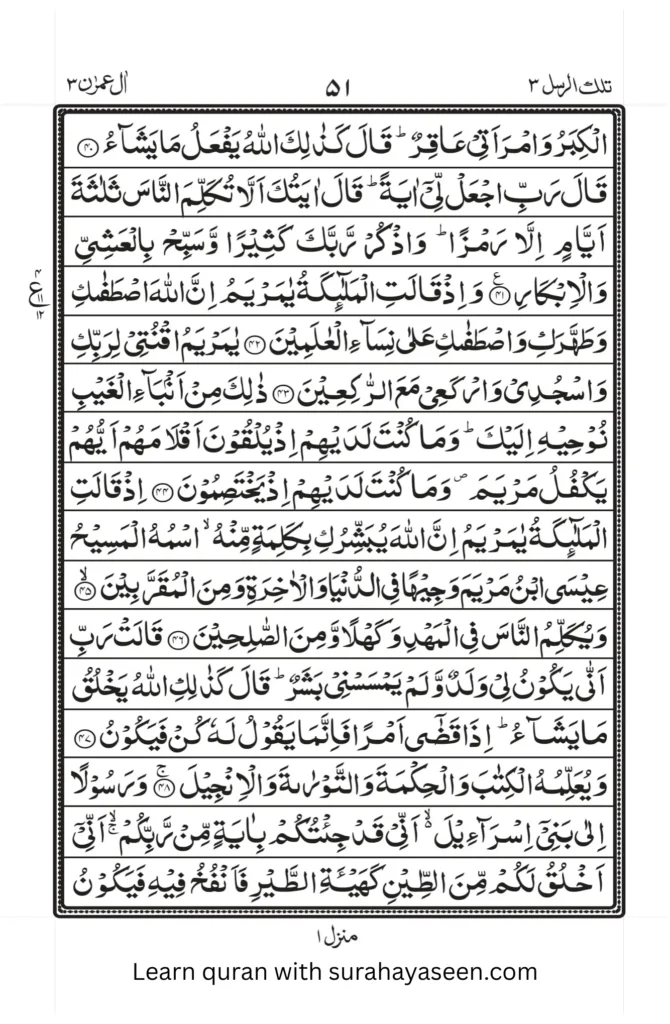 تلك الرسل ٣
٥١
اٰل عمرٰن ٣
الْكِبَرُ وَامْرَاَتِیْ عَاقِرٌ ؕ قَالَ كَذٰلِكَ اللّٰهُ یَفْعَلُ مَا یَشَآءُ ﴿۴۰﴾
قَالَ رَبِّ اجْعَلْ لِّیْۤ اٰیَةً ؕ قَالَ اٰیَتُكَ اَلَّا تُكَلِّمَ النَّاسَ ثَلٰثَةَ
اَیَّامٍ اِلَّا رَمْزًا ؕ وَاذْكُرْ رَّبَّكَ كَثِیْرًا وَّسَبِّحْ بِالْعَشِیِّ
وَالْاِبْكَارِ ﴿۴۱﴾ۧ وَاِذْ قَالَتِ الْمَلٰٓىِٕكَةُ یٰمَرْیَمُ اِنَّ اللّٰهَ اصْطَفٰىكِ
ع ۴ ۱۱ ۱۲
وَطَهَّرَكِ وَاصْطَفٰىكِ عَلٰی نِسَآءِ الْعٰلَمِیْنَ ﴿۴۲﴾ یٰمَرْیَمُ اقْنُتِیْ لِرَبِّكِ
وَاسْجُدِیْ وَارْكَعِیْ مَعَ الرّٰكِعِیْنَ ﴿۴۳﴾ ذٰلِكَ مِنْ اَنْۢبَآءِ الْغَیْبِ
نُوْحِیْهِ اِلَیْكَ ؕ وَمَا كُنْتَ لَدَیْهِمْ اِذْ یُلْقُوْنَ اَقْلَامَهُمْ اَیُّهُمْ
یَكْفُلُ مَرْیَمَ ۪ وَمَا كُنْتَ لَدَیْهِمْ اِذْ یَخْتَصِمُوْنَ ﴿۴۴﴾ اِذْ قَالَتِ
الْمَلٰٓىِٕكَةُ یٰمَرْیَمُ اِنَّ اللّٰهَ یُبَشِّرُكِ بِكَلِمَةٍ مِّنْهُ ۙ اسْمُهُ الْمَسِیْحُ
عِیْسَی ابْنُ مَرْیَمَ وَجِیْهًا فِی الدُّنْیَا وَالْاٰخِرَةِ وَمِنَ الْمُقَرَّبِیْنَ ﴿۴۵﴾ۙ
وَیُكَلِّمُ النَّاسَ فِی الْمَهْدِ وَكَهْلًا وَّمِنَ الصّٰلِحِیْنَ ﴿۴۶﴾ قَالَتْ رَبِّ
اَنّٰی یَكُوْنُ لِیْ وَلَدٌ وَّلَمْ یَمْسَسْنِیْ بَشَرٌ ؕ قَالَ كَذٰلِكِ اللّٰهُ یَخْلُقُ
مَا یَشَآءُ ؕ اِذَا قَضٰۤی اَمْرًا فَاِنَّمَا یَقُوْلُ لَهٗ كُنْ فَیَكُوْنُ ﴿۴۷﴾
وَیُعَلِّمُهُ الْكِتٰبَ وَالْحِكْمَةَ وَالتَّوْرٰىةَ وَالْاِنْجِیْلَ ﴿۴۸﴾ۚ وَرَسُوْلًا
اِلٰی بَنِیْۤ اِسْرَآءِیْلَ ۙ۬ اَنِّیْ قَدْ جِئْتُكُمْ بِاٰیَةٍ مِّنْ رَّبِّكُمْ ۙۚ اَنِّیْۤ
اَخْلُقُ لَكُمْ مِّنَ الطِّیْنِ كَهَیْـَٔةِ الطَّیْرِ فَاَنْفُخُ فِیْهِ فَیَكُوْنُ
منزل ۱
Learn quran with surahayaseen.com